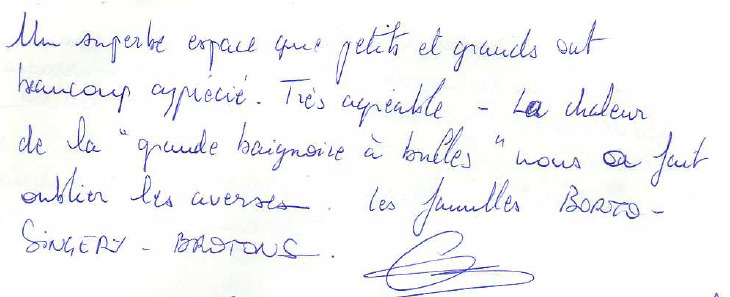 Un superbe espace que petits et grands ont
beaucoup apprécié. Très agréable - La chaleur
de la "grande baignoire à bulles" nous a fait
oublier les averses. Les familles BORTO -
SINGERY - BROTONS.